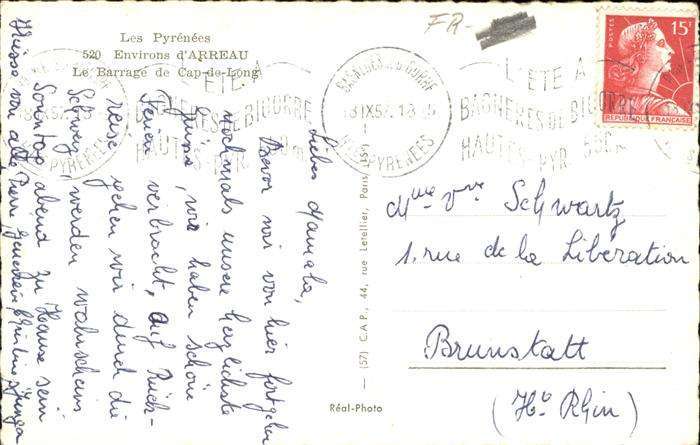 Les Pyrénées
520 Environs d'ARREAU
Le Barrage de Cap-de-Long
FR-
POSTES
15F
REPUBLIQUE FRANÇAISE
BAGNERES DE BIGORRE
18 IX 57
HTES PYRENEES
L'ETE A
BAGNERES DE BIGORRE
HAUTES-PYR. 550m
Liebe Mamama,
Bevor wir von hier fortgehen
nochmals unsere herzlichste
Grüsse, wir haben schöne
Ferien verbracht, auf Rück-
reise gehen wir durch die
Schweiz, werden wahrschein
Sonntag abend zu Hause sein
Grüsse von alle
Mme Vve Schwartz
1, rue de la Libération
Brunstatt
(Ht Rhin)
— (57) C.A.P., 44, rue Letellier, Paris (XV) —
Réal-Photo